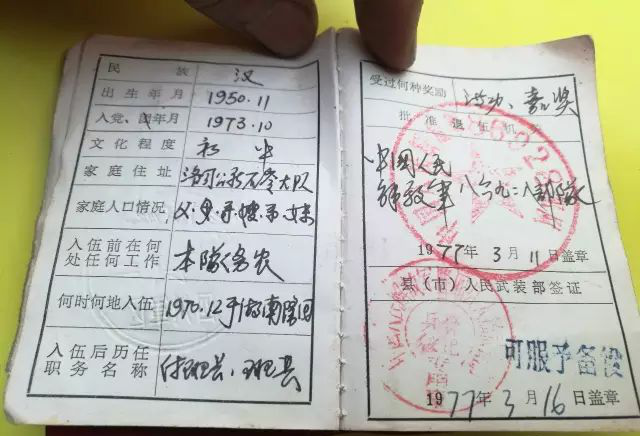 民族 汉
出生年月 1950.11
入党、团年月 1973.10
文化程度 初中
家庭住址 大队
家庭人口情况 父.母.哥.嫂.弟.妹
入伍前在何
处任何工作 本队务农
何时何地入伍 1970.12于湖南
入伍后历任
职务名称 付班长、班长
受过何种奖励 嘉奖
批准退伍机关
中国人民
解放军八六九二八部队
1977年3月11日盖章
县（市）人民武装部签证
可服予备役
1977年3月16日盖章